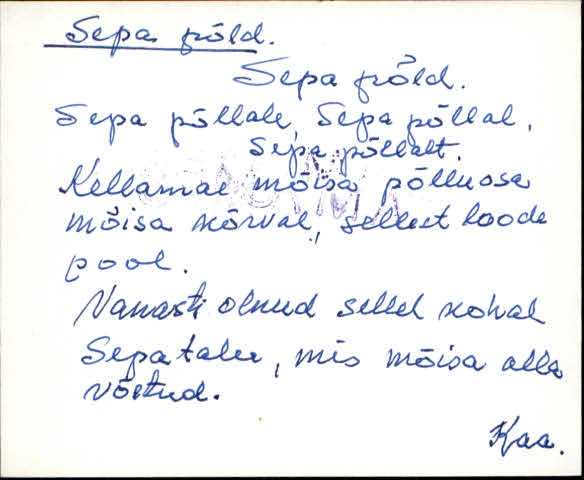 Sepa põld.
Sepa põld.
Sepa põllale, Sepa põllal,
Sepa põllalt.
Kellamäe mõisa põlluosa
mõisa kõrval, sellest loode
pool.
Vanasti olnud sellel kohal
Sepatalu, mis mõisa alla
võetud.
Kaa.